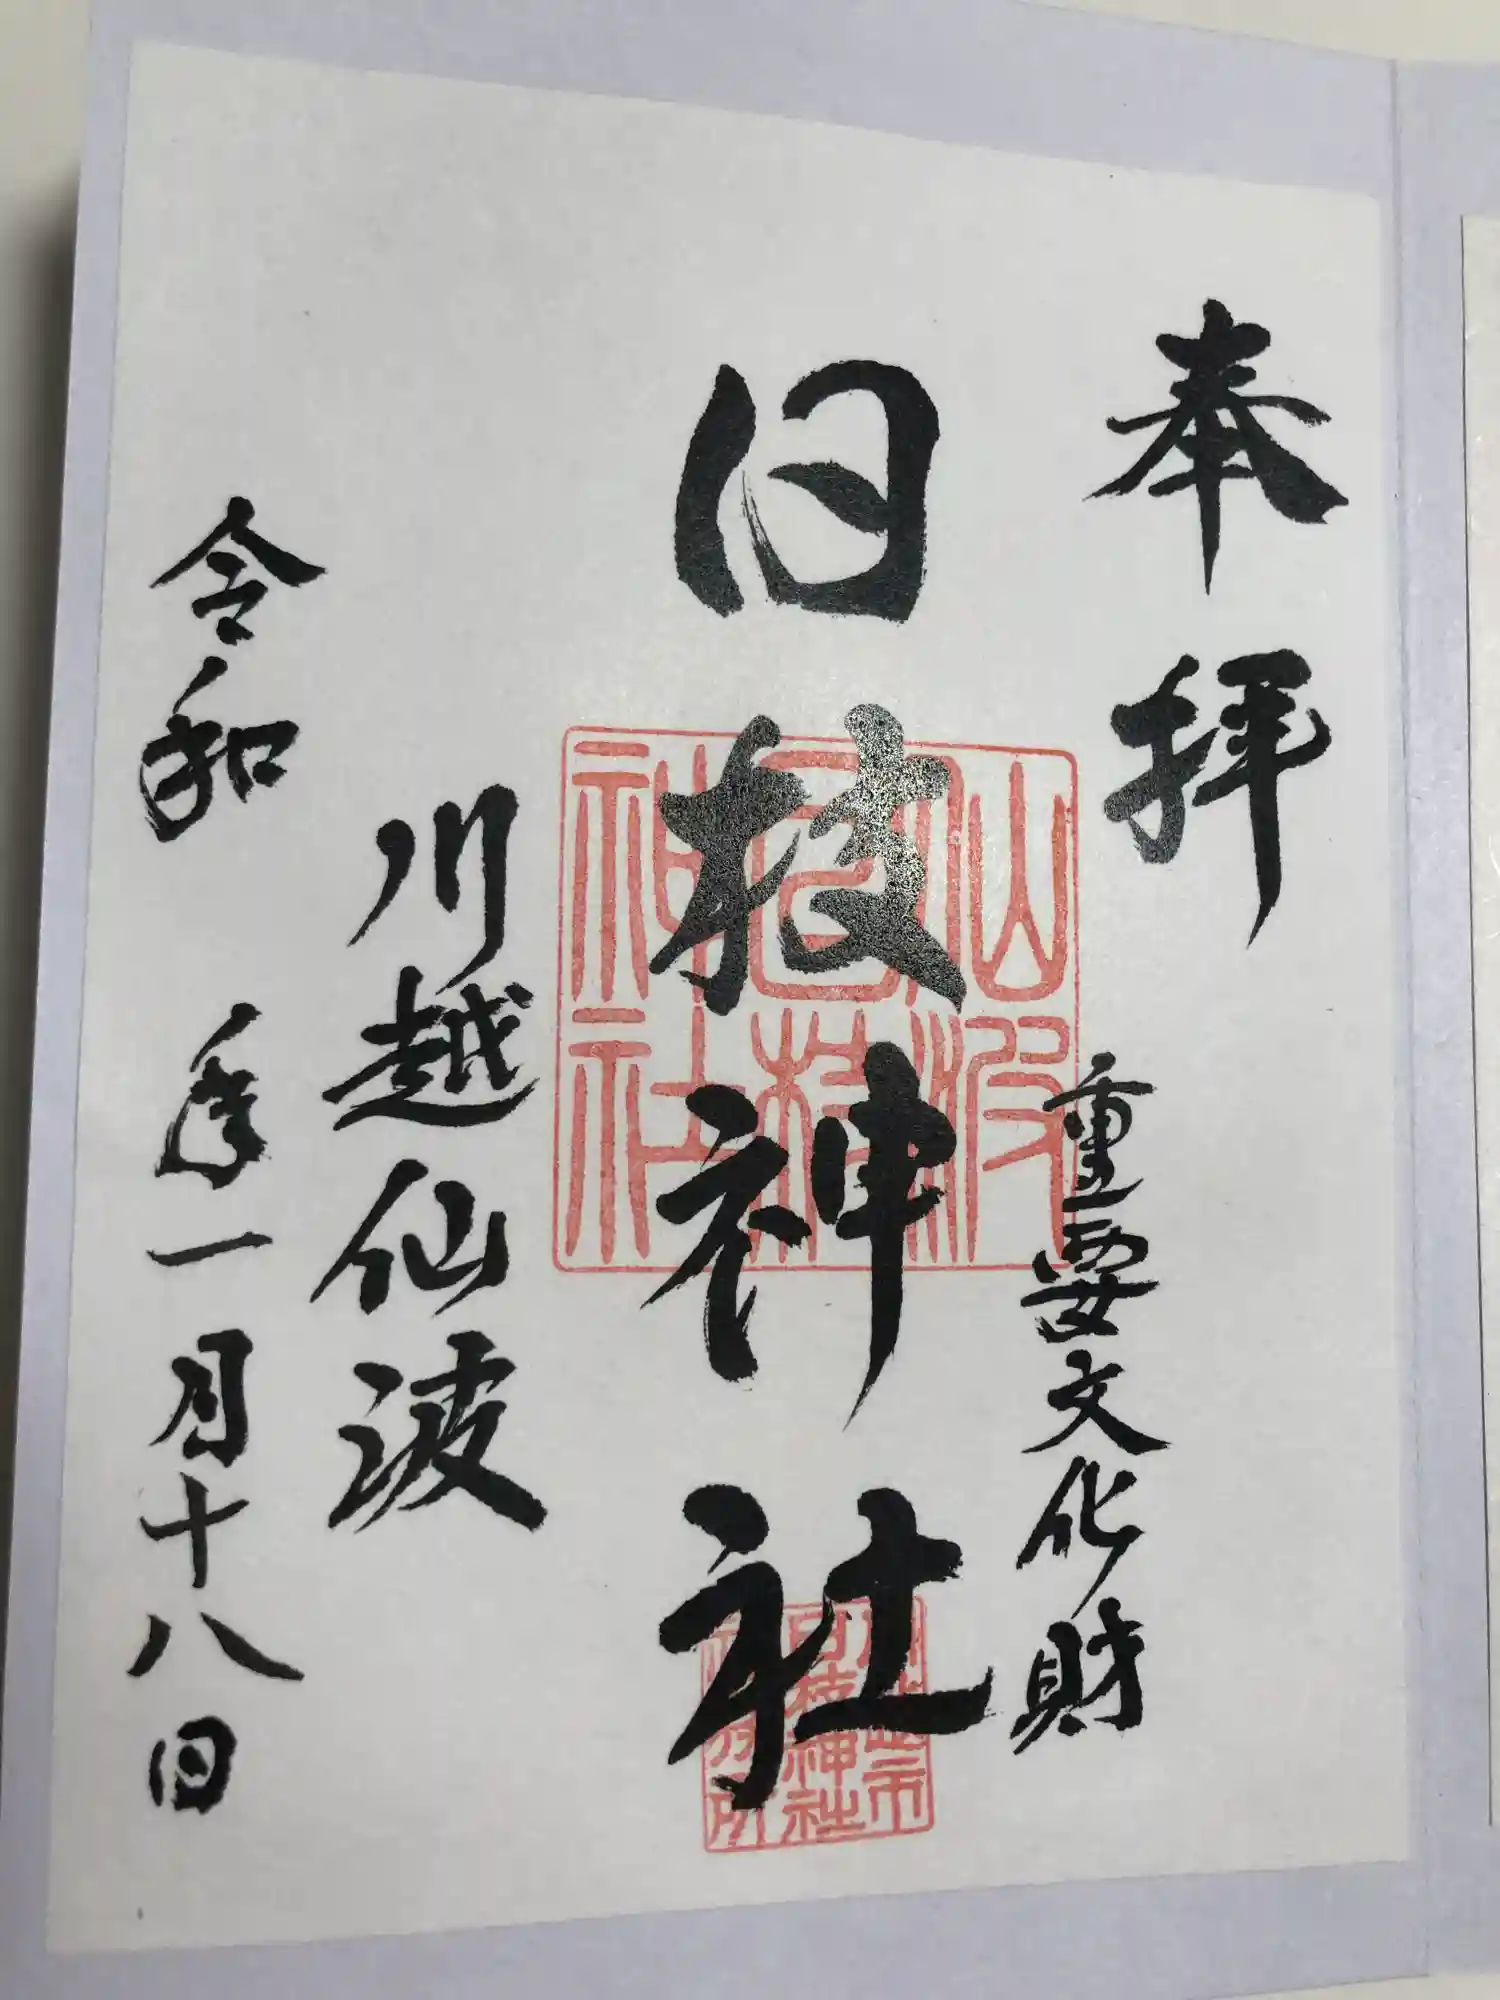 奉拝
重要文化財
日枝神社
川越仙波
令和 年一月十八日
仙波
日枝
神社
日枝神社